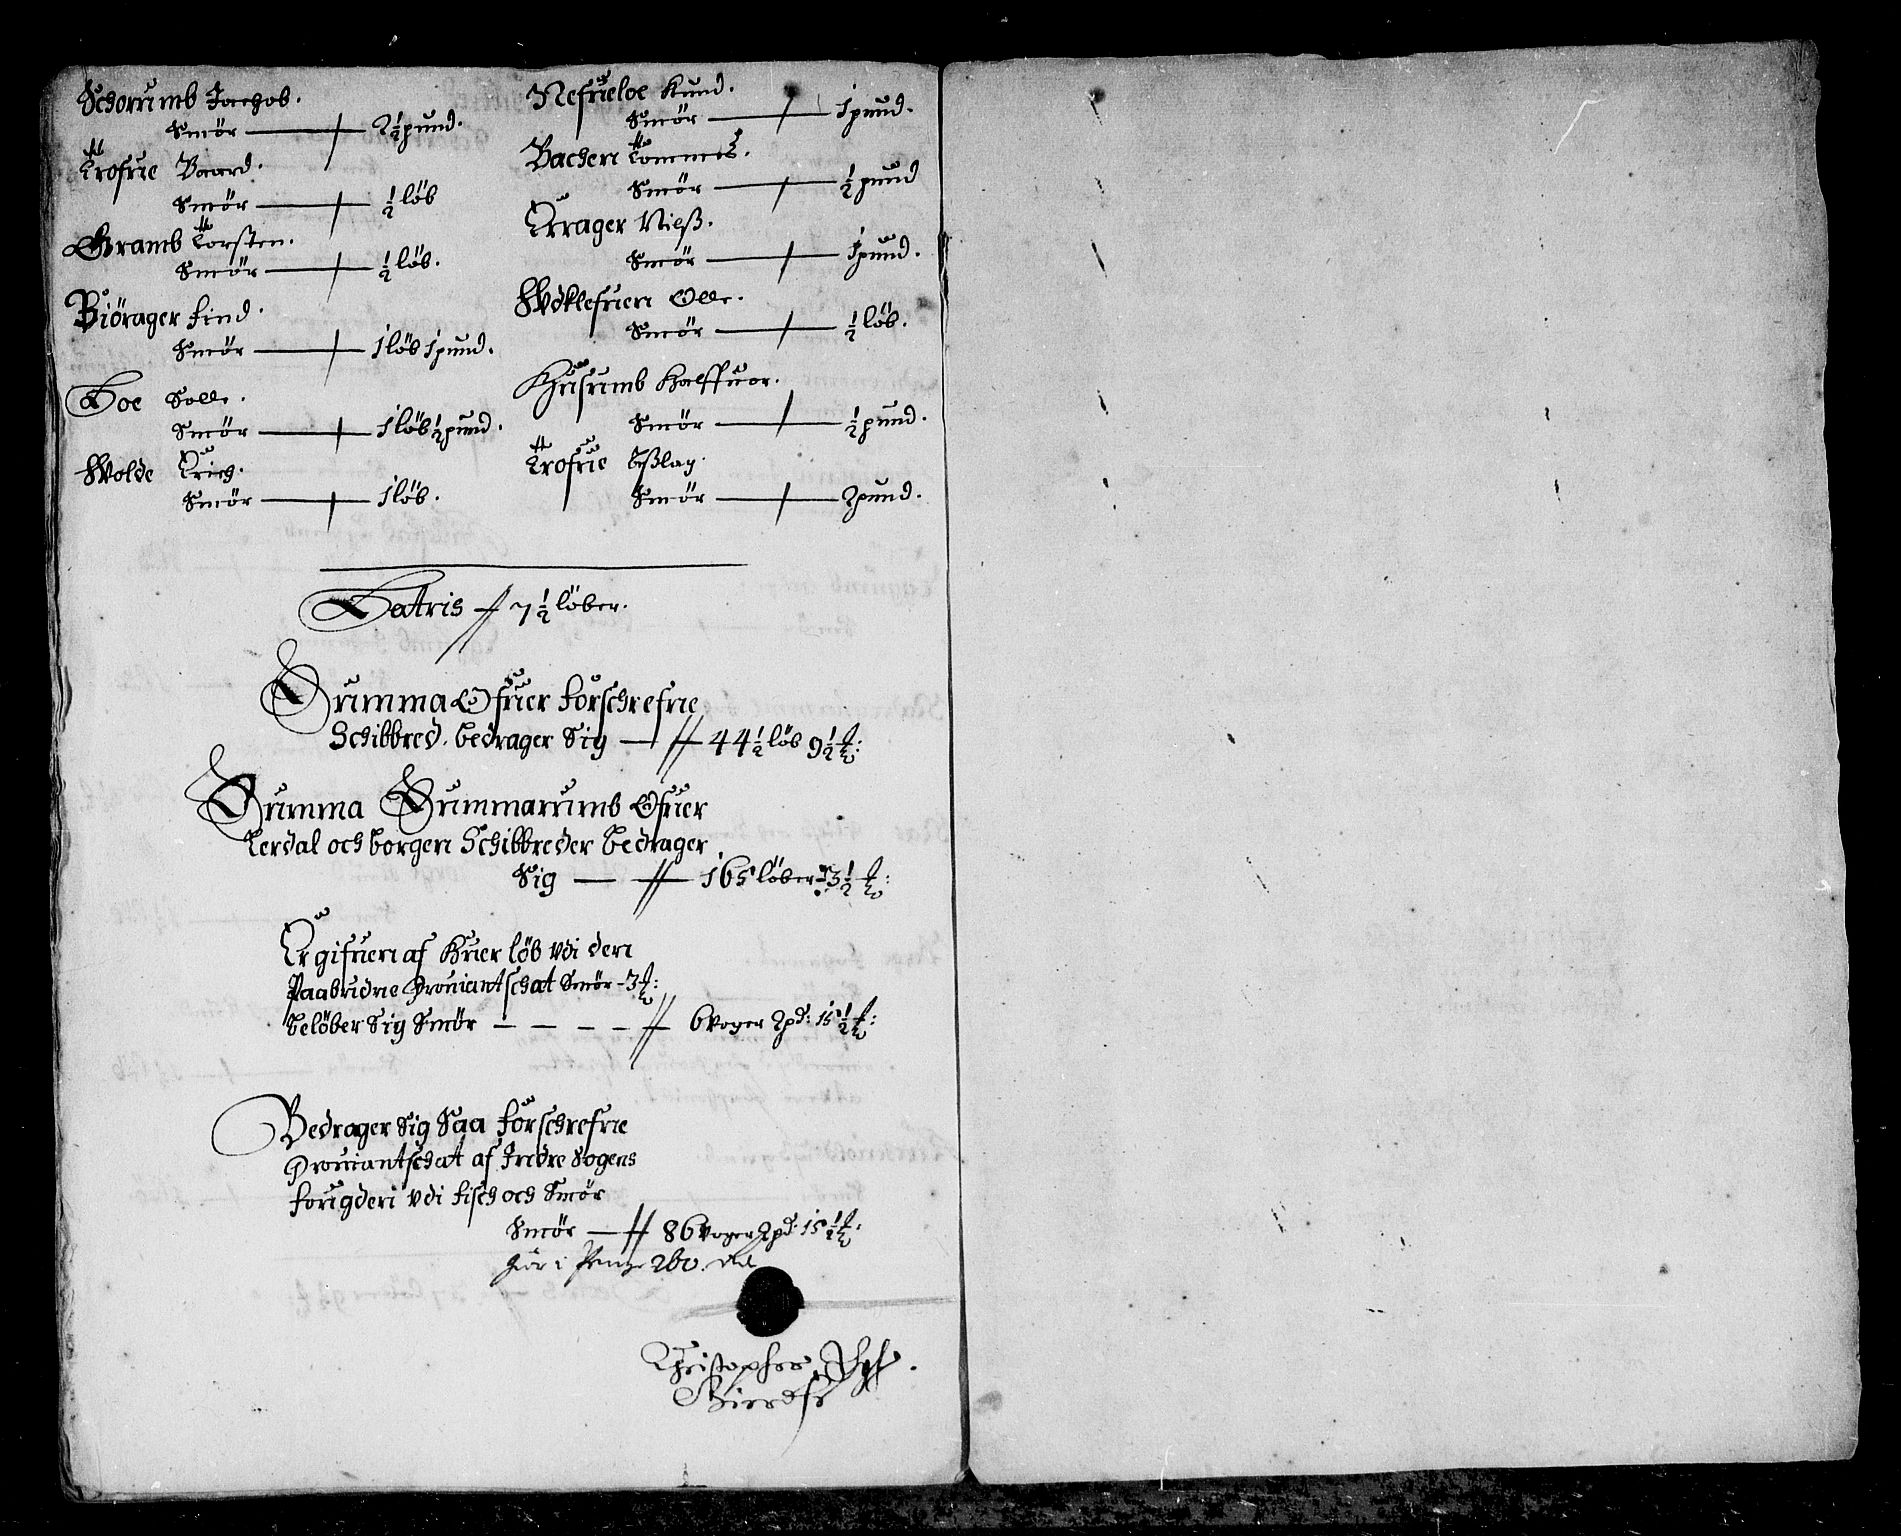 Schorumb Jachob.
Smör — 2½ pund.
Trofue Baard.
Smör — ½ löb
Gramb Torsten.
Smör — ½ löb.
Biörager find.
Smör — 1 löb 1 pund.
Boe Solle.
Smör — 1 löb ½ pund.
Wolde Erich.
Smör — 1 löb.
Nefueloe Knud.
Smör — 1 pund.
Bachen Tommes.
Smör — ½ pund
Errager Nielß.
Smör — 1 pund.
Wdklefuen Olle.
Smör — ½ löb.
Husumb Halffuor.
Smör — ½ pund.
Trofue Aßlag.
Smör — 2 pund.
Latris 7½ löber.
Summa Ofuer forschrefne
Schibbred. bedrager Sig — 44½ löb 9½ ℔:
Summa Summarumb Ofuer
Lerdal och borgen Schibbreder bedrager
Sig — 165 löber 13½ ℔:
Er gifuen af Huer löb vdi den
Paabudne Prouiantschat Smör - 3 ℔:
belöber Sig Smör — 6 Voger 2 pd: 15½ ℔:
Bedrager Sig Saa forschrefne
Prouiantschat af Indre Sogens
fougderi vdi fisch och Smör
Smör — 86 Voger 2 pd: 15½ ℔:
giör i Penge 260. dlr
Christopher